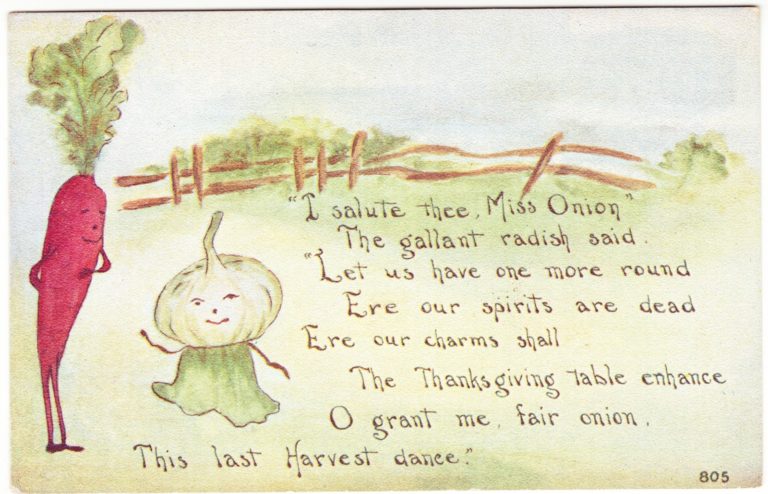 "I salute thee, Miss Onion"
The gallant radish said.
"Let us have one more round
Ere our spirits are dead
Ere our charms shall
The Thanksgiving table enhance
O grant me, fair onion,
This last Harvest dance."
805